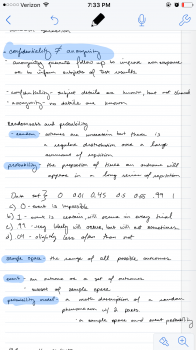 Verizon 7:33 PM
• confidentiality ≠ anonymity
- anonymity prevents follow up to improve non response
or to inform subjects of test results
- confidentiality - subject details are known, but not shared
- anonymity - no details are known
Randomness and probability
random: outcomes are uncertain but there is
a regular distribution over a large
amount of repetition
probability: the proportion of times an outcome will
appear in a long series of repetition
0 0.01 0.45 0.5 0.55 .99 1
a) 0 - event is impossible
b) 1 - event is certain, will occur on every trial
c) .99 - very likely will occur, but will not sometimes
d) - slightly less often than not
sample space: the range of all possible outcomes
event: an outcome or a set of outcomes
- subset of sample space
probability model: a math description of a random
phenomenon w/ 2 parts:
- a sample space and event probability